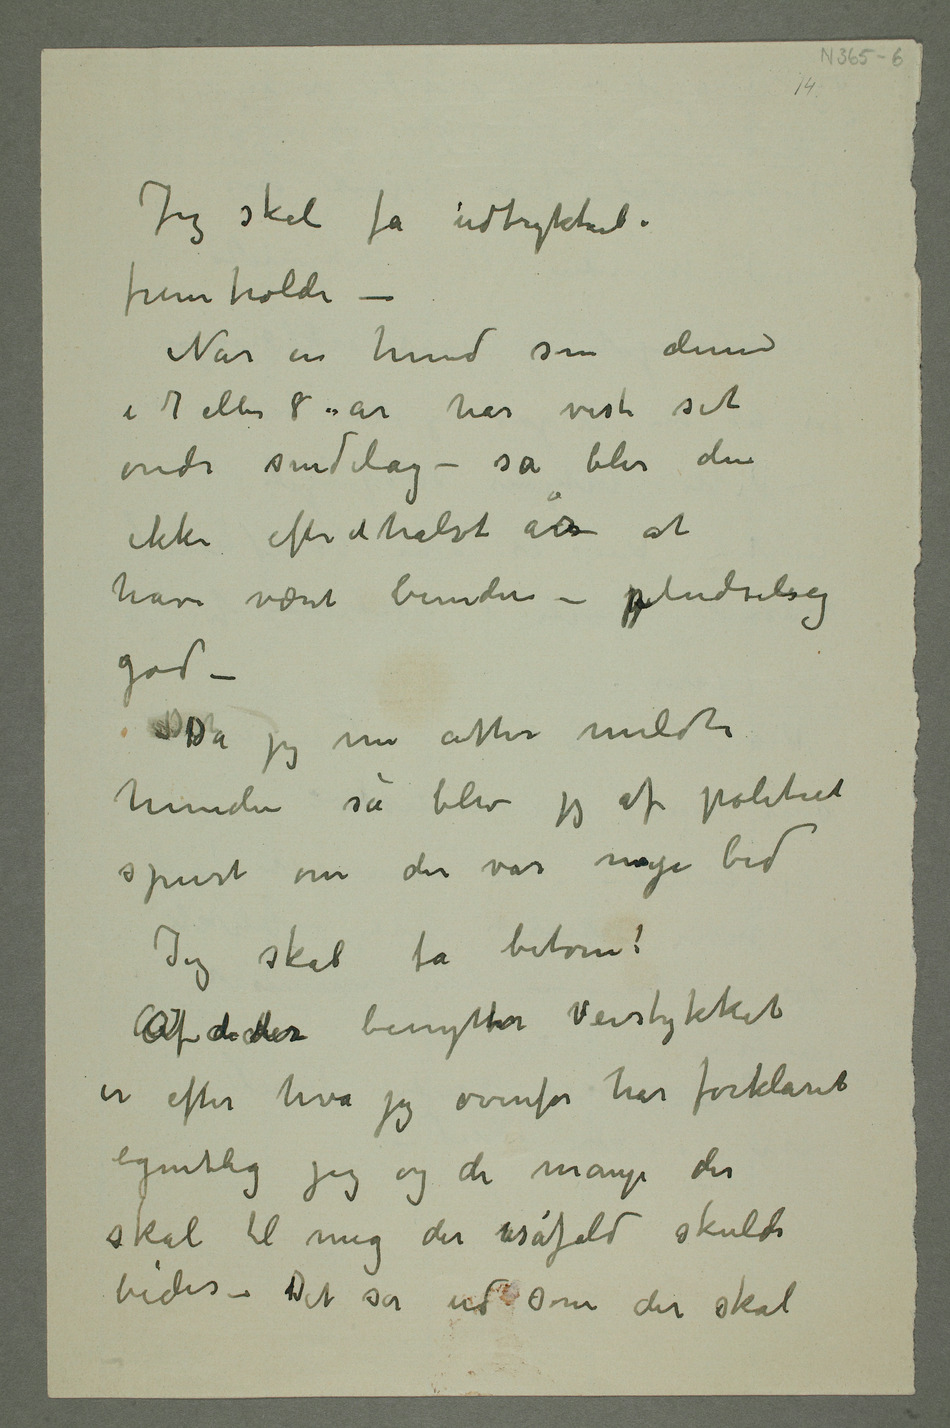 N365-6
14.
Jeg skal få udtrykkel.
fremholde —
Når en hund som denne
i 7 eller 8 år har vist sit
onde sindelag – så blir den
ikke efter et halvt års at
have været bunden – pludselig
god –
Da jeg nu atter meldte
hunden så blev jeg af politiet
spurt om der var nye bid
Jeg skal få betone!
Af de der benytter Veistykket
er efter hva jeg ovenfor har forklaret
egentlig jeg og de mange der
skal til mig der isåfald skulde
bides – Det ser ud som der skal